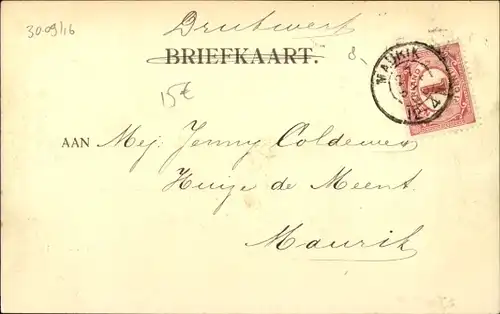 30.09/16
Drukwerk
BRIEFKAART.
8,-
15€
MAURIK
4
1
AAN Mej. Jenny Coldewey
Huize de Meent
Maurik